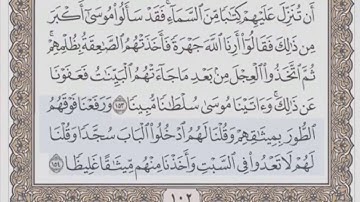 أَن تُنَزِّلَ عَلَيْهِمْ كِتَٰبًا مِّنَ ٱلسَّمَآءِ ۚ فَقَدْ سَأَلُوا۟ مُوسَىٰٓ أَكْبَرَ
مِن ذَٰلِكَ فَقَالُوٓا۟ أَرِنَا ٱللَّهَ جَهْرَةً فَأَخَذَتْهُمُ ٱلصَّٰعِقَةُ بِظُلْمِهِمْ ۚ
ثُمَّ ٱتَّخَذُوا۟ ٱلْعِجْلَ مِنۢ بَعْدِ مَا جَآءَتْهُمُ ٱلْبَيِّنَٰتُ فَعَفَوْنَا
عَن ذَٰلِكَ ۚ وَءَاتَيْنَا مُوسَىٰ سُلْطَٰنًا مُّبِينًا ١٥٣ وَرَفَعْنَا فَوْقَهُمُ
ٱلطُّورَ بِمِيثَٰقِهِمْ وَقُلْنَا لَهُمُ ٱدْخُلُوا۟ ٱلْبَابَ سُجَّدًا وَقُلْنَا
لَهُمْ لَا تَعْدُوا۟ فِى ٱلسَّبْتِ وَأَخَذْنَا مِنْهُم مِّيثَٰقًا غَلِيظًا ١٥٤
١٠٢